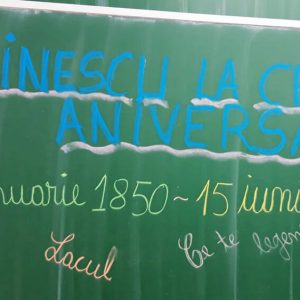 INESCU LA CE
ANIVERSA
nuarie 1850 ~ 15 iuni
Lacul
Ce te legen